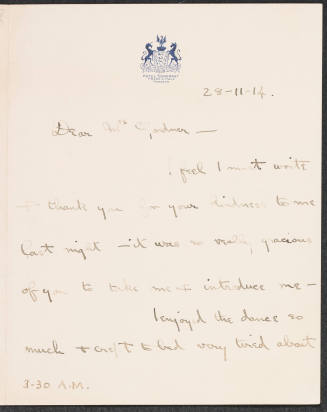 28-11-14.
Dear Mrs Gardner —
I feel I must write
+ thank you for your kindness to me
last night — it was so really gracious
of you to take me + introduce me —
I enjoyed the dance so
much + crept to bed very tired about
3-30 A.M.